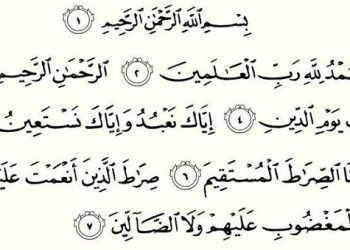 بِسْمِ ٱللَّهِ ٱلرَّحْمَٰنِ ٱلرَّحِيمِ ١
مْدُ لِلَّهِ رَبِّ ٱلْعَٰلَمِينَ ٢ ٱلرَّحْمَٰنِ ٱلرَّحِيمِ
يَوْمِ ٱلدِّينِ ٤ إِيَّاكَ نَعْبُدُ وَإِيَّاكَ نَسْتَعِينُ
نَا ٱلصِّرَٰطَ ٱلْمُسْتَقِيمَ ٦ صِرَٰطَ ٱلَّذِينَ أَنْعَمْتَ عَلَيْ
لْمَغْضُوبِ عَلَيْهِمْ وَلَا ٱلضَّآلِّينَ ٧